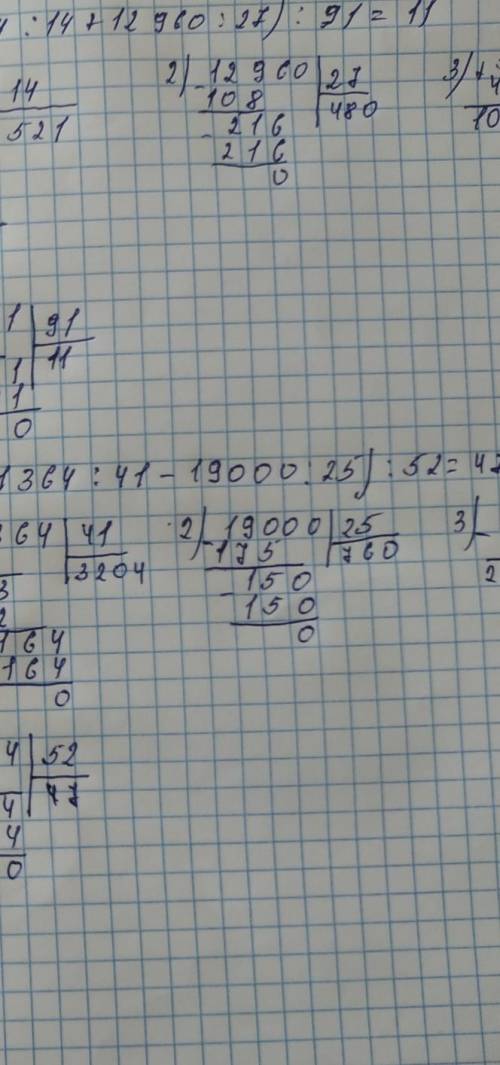 : 14 + 12 960 : 27) : 91 = 11
14
521
2) - 12 960 | 27
108 | 480
- 216
216
0
3) +
10
1 | 91
1 | 11
1
0
1364 : 41 - 19000 : 25) : 52 = 47
364 | 41
3 | 3204
2
164
164
0
2) - 19000 | 25
175 | 760
- 150
150
0
3) -
2
4 | 52
4 | 77
4
0